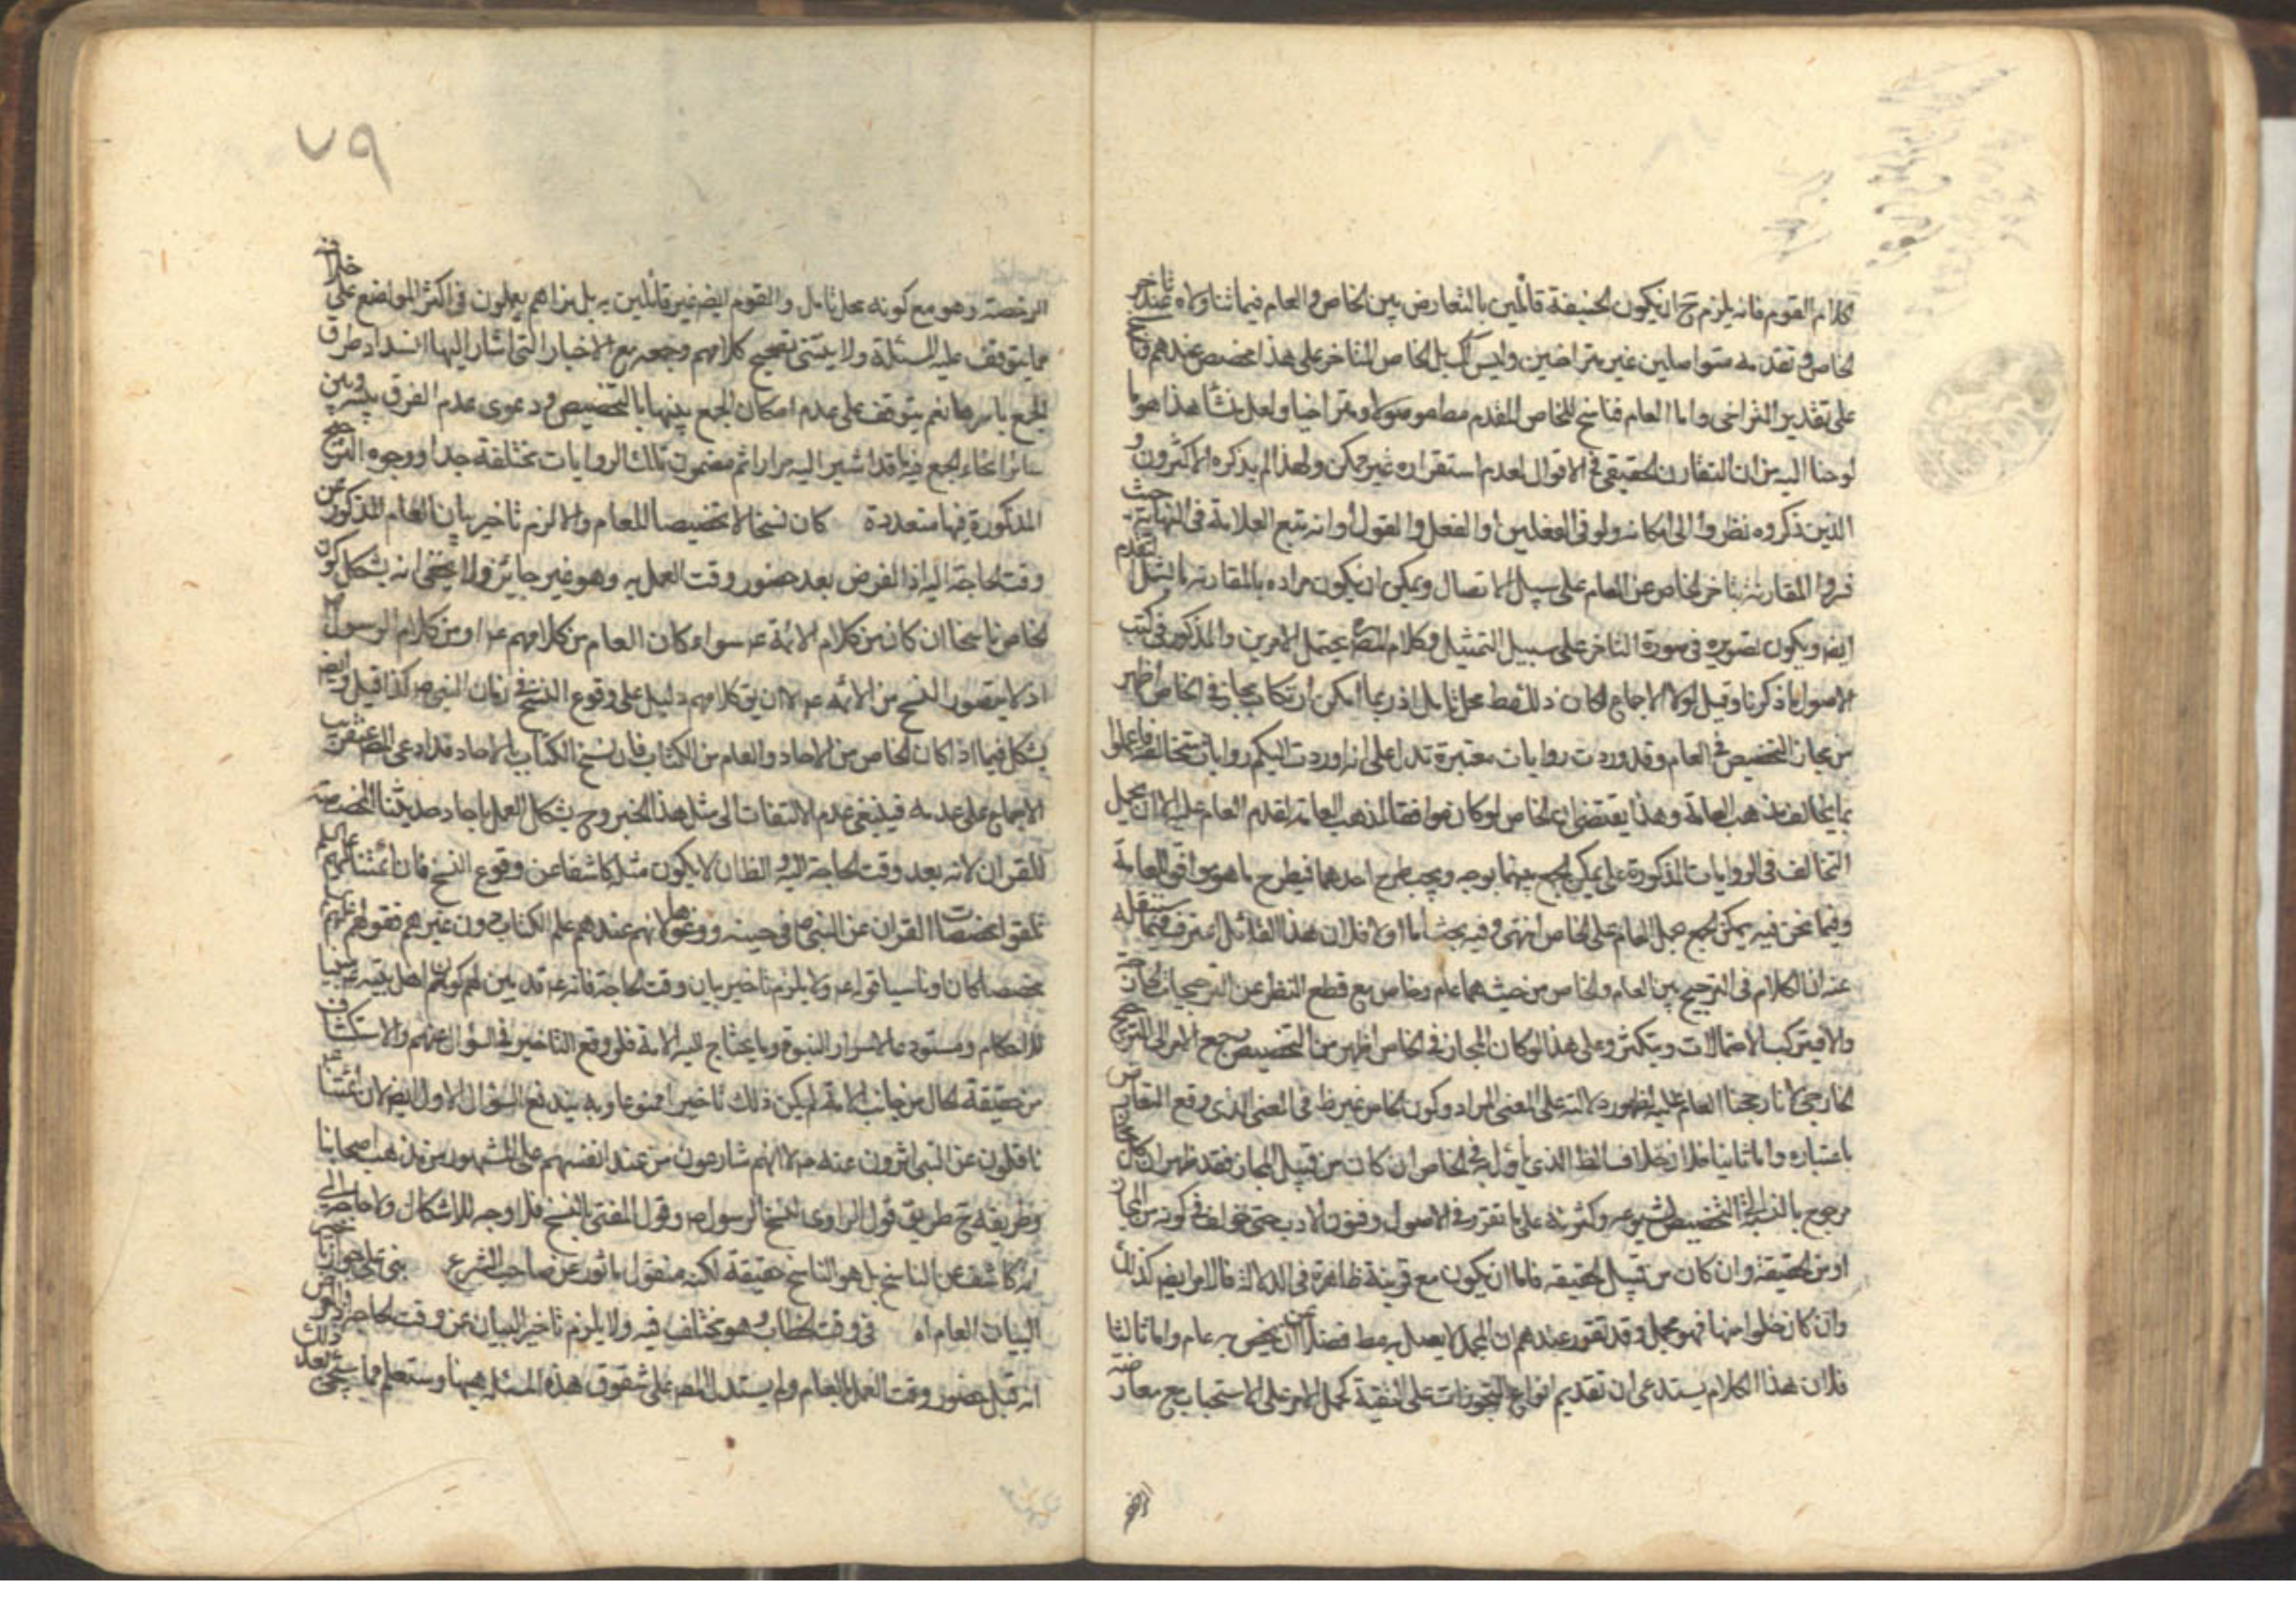 كلام القوم فانه يلزم ح ان يكون الحنيفة قائلين بالتعارض بين الخاص و العام فيما تناولاه عند تاخر
الخاص و تقدمه متواصلين غير متراخين وليس كك بل الخاص المتاخر على هذا مخصص عندهم وناسخ
على تقدير التراخى واما العام فناسخ للخاص المقدم مطلقا موصولا ومتراخيا ولعل منشأ هذا هو ما
لوحنا اليه من ان التقارن الحقيقى فى الاقوال لعدم استقراره غير ممكن ولهذا لم يذكره الاكثرون و
الذين ذكروه نظروا الى امكانه ولو فى الفعلين او الفعل و القول او انه تبع العلامة فى النهاية حيث
فسروا المقارنة بتاخر الخاص عن العام على سبيل الاتصال ويمكن ان يكون مراده بالمقارنة ما يشمل التقدم
ايضا ويكون تصويره فى صورة التاخر على سبيل التمثيل وكلام المص يحتمل الامرين والمذكور فى كتب
الاصول ما ذكرنا وقيل لولا الاجماع لكان ذلك محل تامل اذ ربما امكن ارتكاب مجاز فى الخاص اظهر
من مجاز التخصيص فى العام وقد وردت روايات معتبرة تدل على انه اوردت اليكم روايات متخالفة فاعملوا
بما يخالف مذهب العامة وهذا يقتضى ان الخاص لو كان موافقا لمذهب العامة لقدم العام عليه الا ان يحمل
التخالف فى الروايات المذكورة على ما لا يمكن الجمع بينهما بوجه ويجب طرح احدهما فيطرح ما هو موافق العامة
وفيما نحن فيه يمكن الجمع بحمل العام على الخاص انتهى وفيه بحث اما اولا فلان هذا القائل معترف فيما سننقله
عنه ان الكلام فى الترجيح بين العام والخاص من حيث هما عام وخاص مع قطع النظر عن الترجيحات الخارجة
والا فيتركب الاحتمالات ويتكثر وعلى هذا لو كان المجاز فى الخاص اظهر من التخصيص رجع الامر الى الترجيح
الخارجى لانا رجحنا العام عليه لظهور دلالته على المعنى المراد وكون الخاص غير ظ فى المعنى الذى وقع التعارض
باعتباره واما ثانيا فلان خلاف الظ الذى يأول به الخاص ان كان من قبيل المجاز فقد ظهر ان كل مجاز
مرجوح بالنسبة الى التخصيص لشيوعه وكثرته على ما تقرر فى الاصول وفنون الادب حتى خولف فى كونه من المجاز
او من الحقيقة وان كان من قبيل الحقيقة فاما ان يكون مع قرينة ظاهرة فى الدلالة فالامر ايضا كذلك
وان كان خلوا منها فهو مجمل وقد تقرر عندهم ان المجمل لا يعمل به فضلا عن ان يخص به عام واما ثالثا
فلان هذا الكلام يستدعى ان تقديم انواع التجوزات على التقية كحمل الامر على الاستحباب مع معارضته
٧٩
الرخصة وهو مع كونه محل تامل والقوم ايضا غير قائلين به بل نراهم يعملون فى اكثر المواضع على خلافه
مما يتوقف عليه المسئلة ولا يبتنى تصحيح كلامهم وجمعه مع الاخبار التى اشار اليها انسداد طرق
الجمع باسرها نعم يتوقف على عدم امكان الجمع بينها بالتخصيص ودعوى عدم الفرق بينه وبين
سائر انحاء الجمع فيه ما قد اشير اليه مرارا ثم مضمون تلك الروايات مختلفة جدا ووجوه الترجيح
المذكورة فيها متعددة كان نسخا لا تخصيصا للعام والا لزم تاخير بيان العام المذكور عن
وقت الحاجة اليه اذ الفرض بعد حضور وقت العمل به وهو غير جائز ولا يخفى انه يشكل كون
الخاص ناسخا ان كان من كلام الائمة ع سواء كان العام من كلامهم ع او من كلام الرسول ص
اذ لا يتصور النسخ من الائمة ع الا ان يق كلامهم دليل على وقوع النسخ فى زمان النبى ص كذا قيل وايضا
يشكل فيما اذا كان الخاص من الاحاد والعام من الكتاب فان نسخ الكتاب بالاحاد قد ادعى المص عنقريب
الاجماع على عدمه فينبغى عدم الالتفات الى مثل هذا الخبر وح يشكل العمل باحاديثنا المخصصة
للقران لانه بعد وقت الحاجة اليه الظ ان لا يكون مثله كاشفا عن وقوع النسخ فان ائمتنا عليهم
تلقوا مخصصات القران عن النبى ص فى حينه ووعوها لانهم عندهم علم الكتاب دون غيرهم فقولهم عليهم
مخصصا كان او ناسيا قوله ع ولا يلزم تاخير بيان وقت الحاجة فانه ع قد بين لهم كونهم اهل بيته ع
للاحكام ومستودعا لاسرار النبوة وما يحتاج اليه الامة فلو وقع التاخير فى السؤال عنهم والاستكشاف
من حقيقة الحال من جانب الامة لم يكن ذلك تاخيرا ممنوعا وبه يندفع السؤال الاول ايضا لان ائمتنا ع
ناقلون عن النبى اثرون عنه ص لا انهم شارعون من عند انفسهم على المشهور من مذهب اصحابنا
وطريقه ح طريق قول الراوى نسخ الرسول ص وقول المفتى بالنسخ فلا وجه للاشكال ولا حاجة الى
انه كاشف عن الناسخ بل هو الناسخ حقيقة لكنه منقول ماثور عن صاحب الشرع بنى على جواز تاخير
البيان العام اه فى وقت الخطاب وهو مختلف فيه ولا يلزم تاخير البيان عن وقت الحاجة اذ الفرض
انه قبل حضور وقت العمل بالعام ولم يستدل المص على شقوق هذه المسئلة هيهنا وستعلم مما سيجئ بعد ذلك